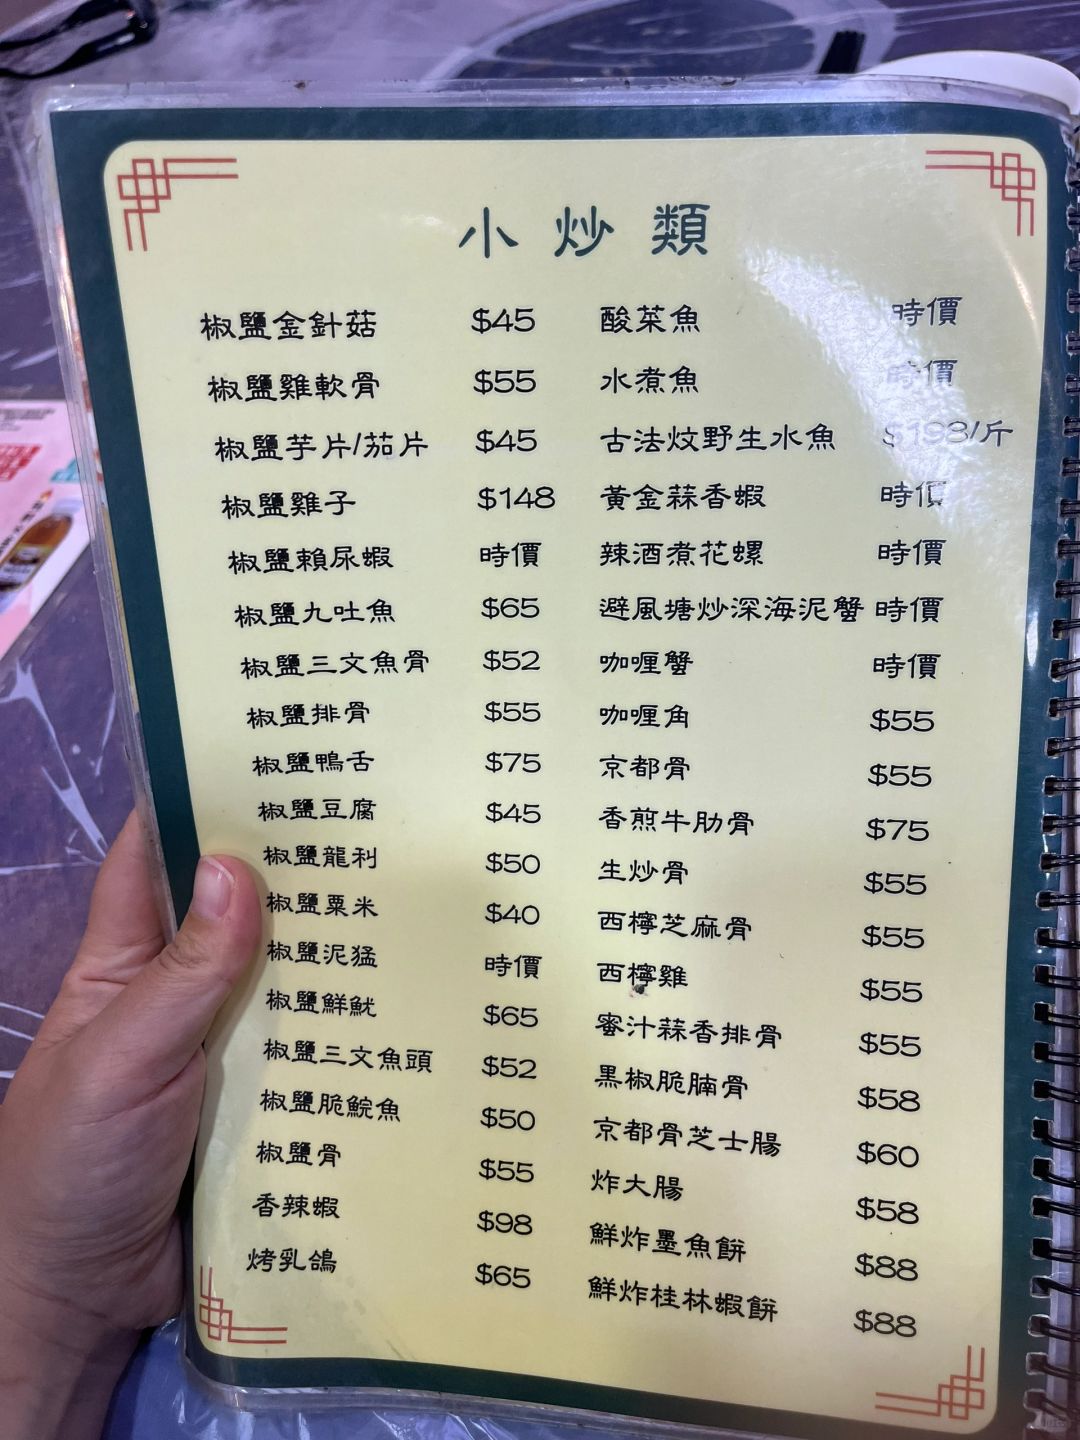 小炒類
椒鹽金針菇 $45
椒鹽雞軟骨 $55
椒鹽芋片/茄片 $45
椒鹽雞子 $148
椒鹽賴尿蝦 時價
椒鹽九吐魚 $65
椒鹽三文魚骨 $52
椒鹽排骨 $55
椒鹽鴨舌 $75
椒鹽豆腐 $45
椒鹽龍利 $50
椒鹽粟米 $40
椒鹽泥猛 時價
椒鹽鮮魷 $65
椒鹽三文魚頭 $52
椒鹽脆鯇魚 $50
椒鹽骨 $55
香辣蝦 $98
烤乳鴿 $65
酸菜魚 時價
水煮魚 時價
古法炆野生水魚 /斤
黃金蒜香蝦 時價
辣酒煮花螺 時價
避風塘炒深海泥蟹 時價
咖喱蟹 時價
咖喱角 $55
京都骨 $55
香煎牛肋骨 $75
生炒骨 $55
西檸芝麻骨 $55
西檸雞 $55
蜜汁蒜香排骨 $55
黑椒脆腩骨 $58
京都骨芝士腸 $60
炸大腸 $58
鮮炸墨魚餅 $88
鮮炸桂林蝦餅 $88